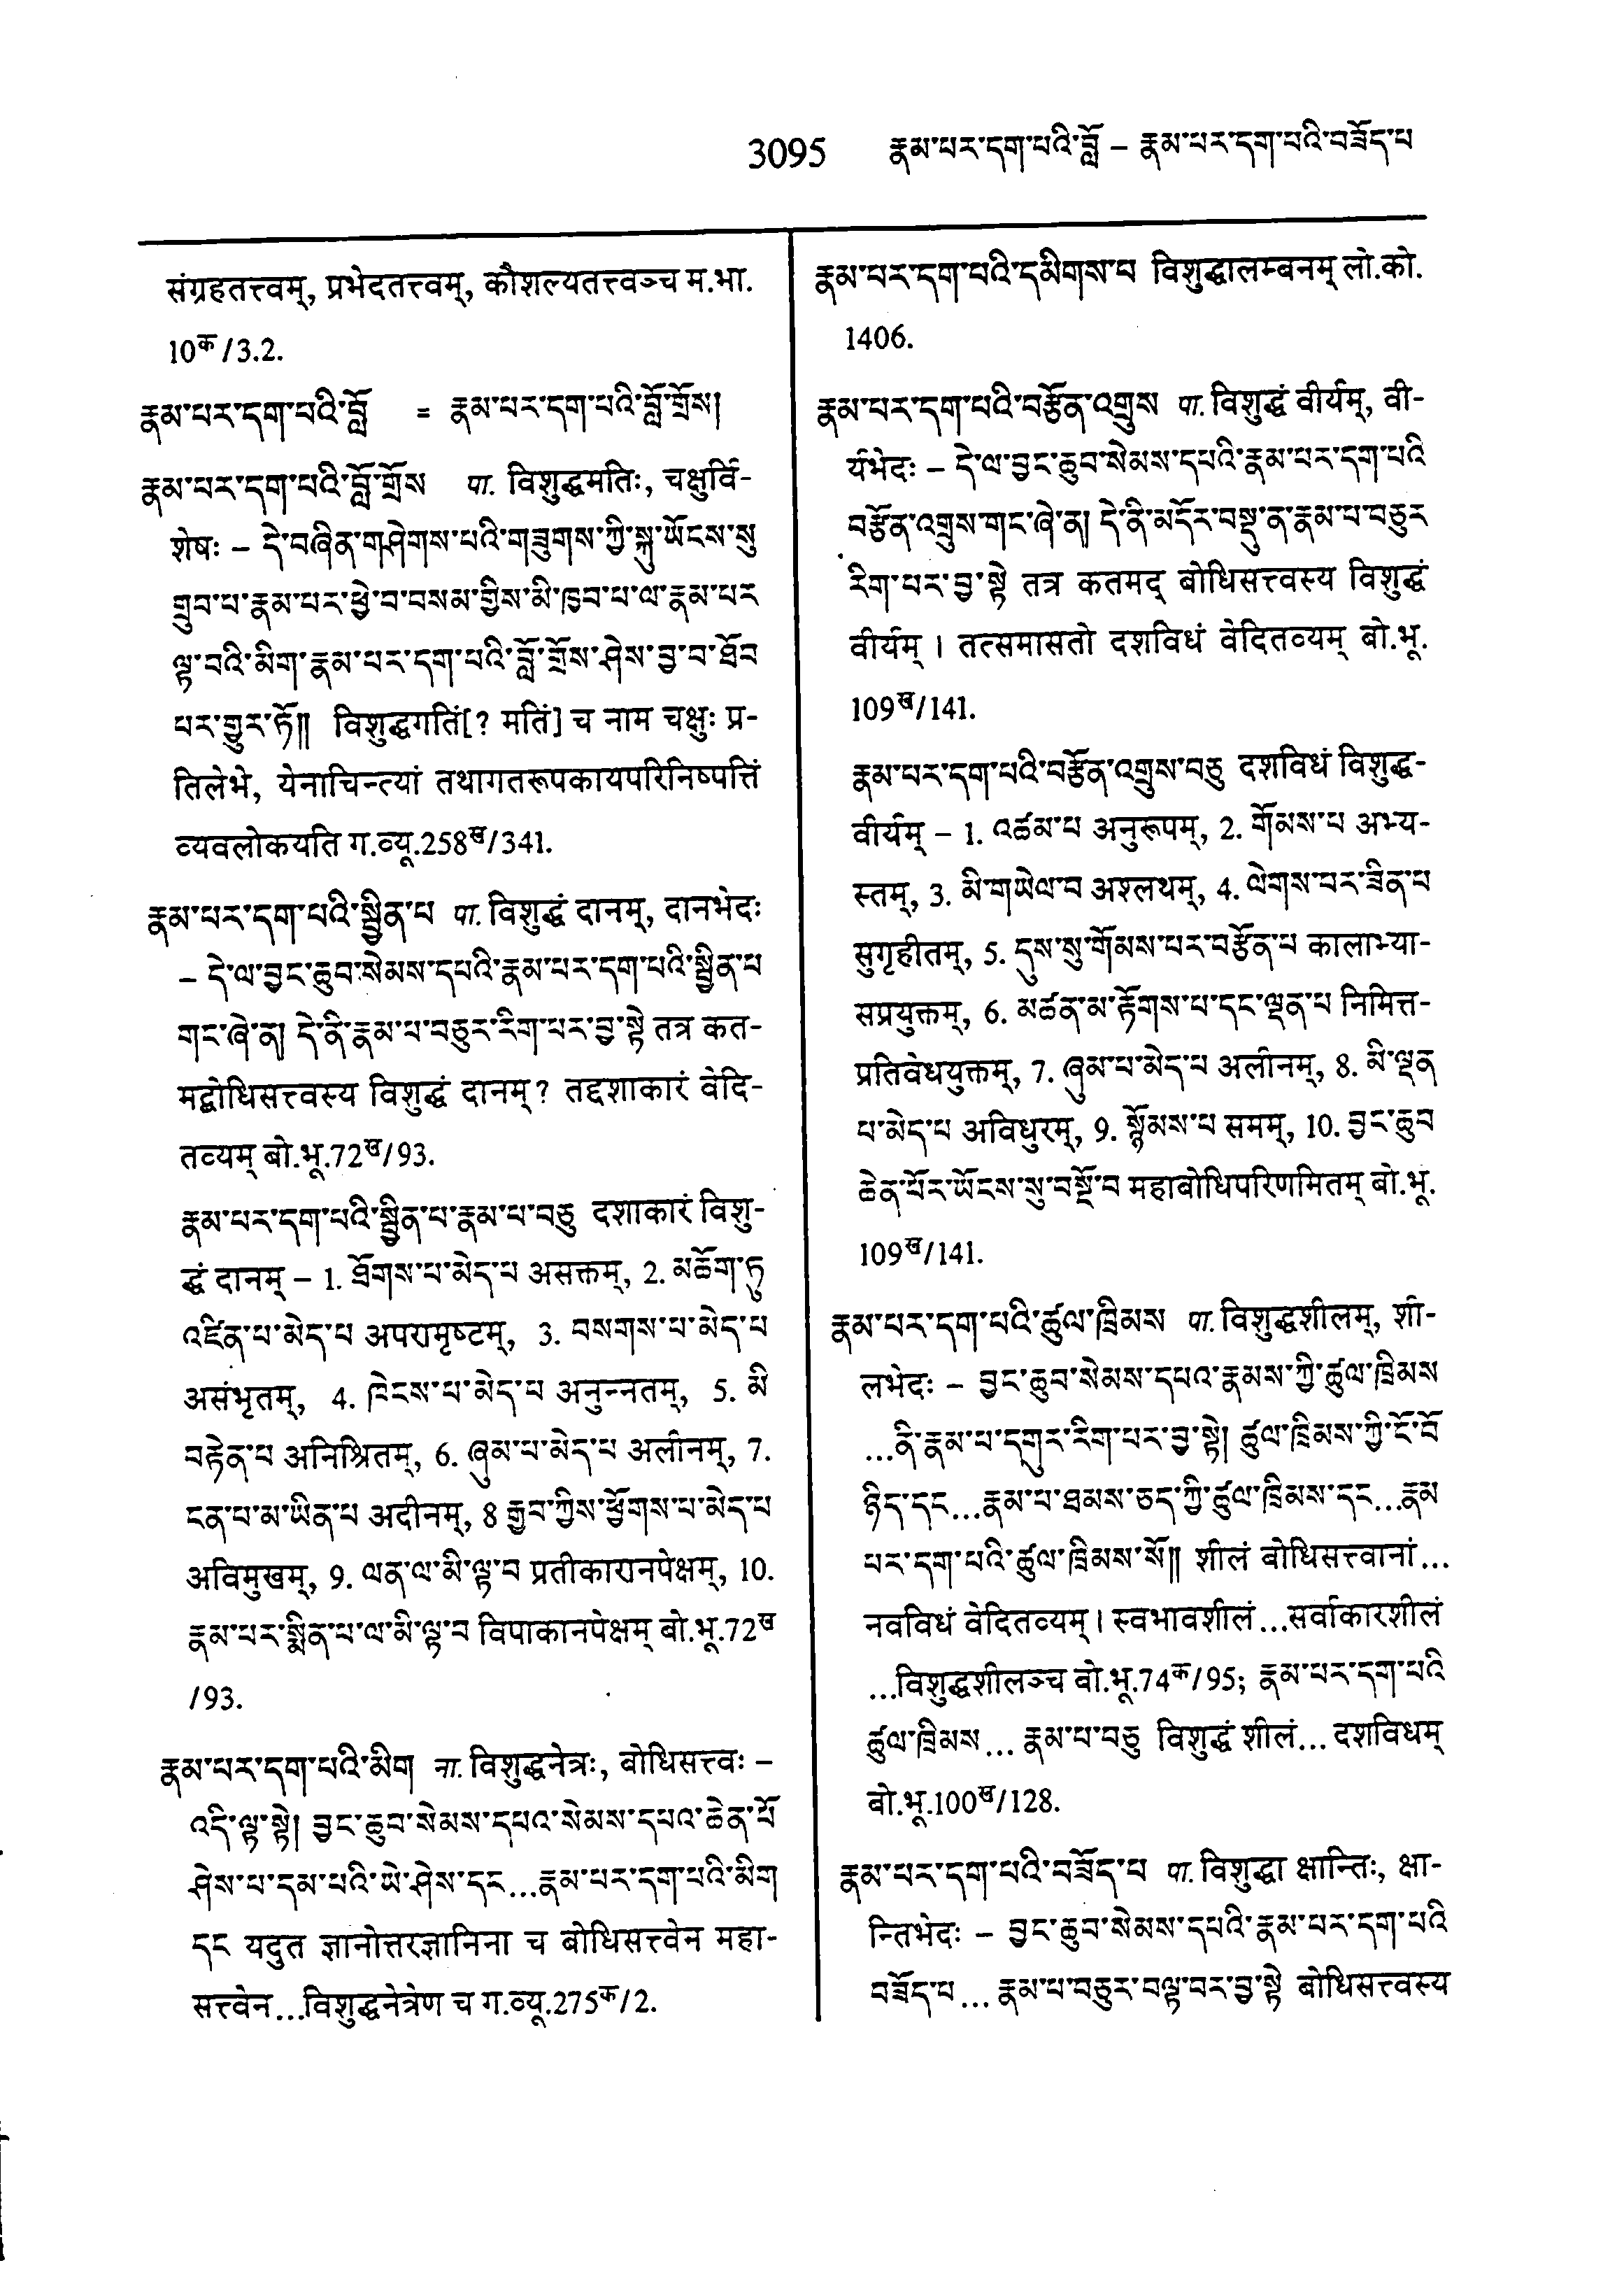 3095 རྣམ་པར་དག་པའི་བློ – རྣམ་པར་དག་པའི་བཟོད་པ
संग्रहतत्त्वम्, प्रभेदतत्त्वम्, कौशल्यतत्त्वञ्च म.भा.
10क/3.2.
རྣམ་པར་དག་པའི་བློ = རྣམ་པར་དག་པའི་བློ་གྲོས།
རྣམ་པར་དག་པའི་བློ་གྲོས पा. विशुद्धमतिः, चक्षुर्वि-
शेषः – དེ་བཞིན་གཤེགས་པའི་གཟུགས་ཀྱི་སྐུ་ཡོངས་སུ
གྲུབ་པ་རྣམ་པར་ཕྱེ་བ་བསམ་གྱིས་མི་ཁྱབ་པ་ལ་རྣམ་པར
ལྟ་བའི་མིག་རྣམ་པར་དག་པའི་བློ་གྲོས་ཤེས་བྱ་བ་ཐོབ
པར་གྱུར་ཏོ༎ विशुद्धगतिं[? मतिं] च नाम चक्षुः प्र-
तिलेभे, येनाचिन्त्यां तथागतरूपकायपरिनिष्पत्तिं
व्यवलोकयति ग.व्यू.258ख/341.
རྣམ་པར་དག་པའི་སྦྱིན་པ पा. विशुद्धं दानम्, दानभेदः
– དེ་ལ་བྱང་ཆུབ་སེམས་དཔའི་རྣམ་པར་དག་པའི་སྦྱིན་པ
གང་ཞེ་ན། དེ་ནི་རྣམ་པ་བཅུར་རིག་པར་བྱ་སྟེ तत्र कत-
मद्बोधिसत्त्वस्य विशुद्धं दानम्? तद्दशाकारं वेदि-
तव्यम् बो.भू.72ख/93.
རྣམ་པར་དག་པའི་སྦྱིན་པ་རྣམ་པ་བཅུ दशाकारं विशु-
द्धं दानम् – 1. ཐོགས་པ་མེད་པ असक्तम्, 2. མཆོག་ཏུ
འཛིན་པ་མེད་པ अपरामृष्टम्, 3. བསགས་པ་མེད་པ
असंभृतम्, 4. ཁེངས་པ་མེད་པ अनुन्नतम्, 5. མི
བརྟེན་པ अनिश्रितम्, 6. ཞུམ་པ་མེད་པ अलीनम्, 7.
ངན་པ་མ་ཡིན་པ अदीनम्, 8 རྒྱབ་ཀྱིས་ཕྱོགས་པ་མེད་པ
अविमुखम्, 9. ལན་ལ་མི་ལྟ་བ प्रतीकारानपेक्षम्, 10.
རྣམ་པར་སྨིན་པ་ལ་མི་ལྟ་བ विपाकानपेक्षम् बो.भू.72ख
/93.
རྣམ་པར་དག་པའི་མིག ना. विशुद्धनेत्रः, बोधिसत्त्वः –
འདི་ལྟ་སྟེ། བྱང་ཆུབ་སེམས་དཔའ་སེམས་དཔའ་ཆེན་པོ
ཤེས་པ་དམ་པའི་ཡེ་ཤེས་དང...རྣམ་པར་དག་པའི་མིག
དང यदुत ज्ञानोत्तरज्ञानिना च बोधिसत्त्वेन महा-
सत्त्वेन...विशुद्धनेत्रेण च ग.व्यू.275क/2.
རྣམ་པར་དག་པའི་དམིགས་པ विशुद्धालम्बनम् लो.को.
1406.
རྣམ་པར་དག་པའི་བརྩོན་འགྲུས पा. विशुद्धं वीर्यम्, वी-
र्यभेदः – དེ་ལ་བྱང་ཆུབ་སེམས་དཔའི་རྣམ་པར་དག་པའི
བརྩོན་འགྲུས་གང་ཞེ་ན། དེ་ནི་མདོར་བསྡུ་ན་རྣམ་པ་བཅུར
རིག་པར་བྱ་སྟེ तत्र कतमद् बोधिसत्त्वस्य विशुद्धं
वीर्यम् । तत्समासतो दशविधं वेदितव्यम् बो.भू.
109ख/141.
རྣམ་པར་དག་པའི་བརྩོན་འགྲུས་བཅུ दशविधं विशुद्ध-
वीर्यम् – 1. འཚམ་པ अनुरूपम्, 2. གོམས་པ अभ्य-
स्तम्, 3. མི་གཡེལ་བ अश्लथम्, 4. ལེགས་པར་ཟིན་པ
सुगृहीतम्, 5. དུས་སུ་གོམས་པར་བརྩོན་པ कालाभ्या-
सप्रयुक्तम्, 6. མཚན་མ་རྟོགས་པ་དང་ལྡན་པ निमित्त-
प्रतिवेधयुक्तम्, 7. ཞུམ་པ་མེད་པ अलीनम्, 8. མི་ལྡན
པ་མེད་པ अविधुरम्, 9. སྙོམས་པ समम्, 10. བྱང་ཆུབ
ཆེན་པོར་ཡོངས་སུ་བསྔོ་བ महाबोधिपरिणमितम् बो.भू.
109ख/141.
རྣམ་པར་དག་པའི་ཚུལ་ཁྲིམས पा. विशुद्धशीलम्, शी-
लभेदः – བྱང་ཆུབ་སེམས་དཔའ་རྣམས་ཀྱི་ཚུལ་ཁྲིམས
...ནི་རྣམ་པ་དགུར་རིག་པར་བྱ་སྟེ། ཚུལ་ཁྲིམས་ཀྱི་ངོ་བོ
ཉིད་དང...རྣམ་པ་ཐམས་ཅད་ཀྱི་ཚུལ་ཁྲིམས་དང...རྣམ
པར་དག་པའི་ཚུལ་ཁྲིམས་སོ༎ शीलं बोधिसत्त्वानां...
नवविधं वेदितव्यम् । स्वभावशीलं...सर्वाकारशीलं
...विशुद्धशीलञ्च बो.भू.74क/95; རྣམ་པར་དག་པའི
ཚུལ་ཁྲིམས... རྣམ་པ་བཅུ विशुद्धं शीलं... दशविधम्
बो.भू.100ख/128.
རྣམ་པར་དག་པའི་བཟོད་པ पा. विशुद्धा क्षान्तिः, क्षा-
न्तिभेदः – བྱང་ཆུབ་སེམས་དཔའི་རྣམ་པར་དག་པའི
བཟོད་པ... རྣམ་པ་བཅུར་བལྟ་བར་བྱ་སྟེ बोधिसत्त्वस्य